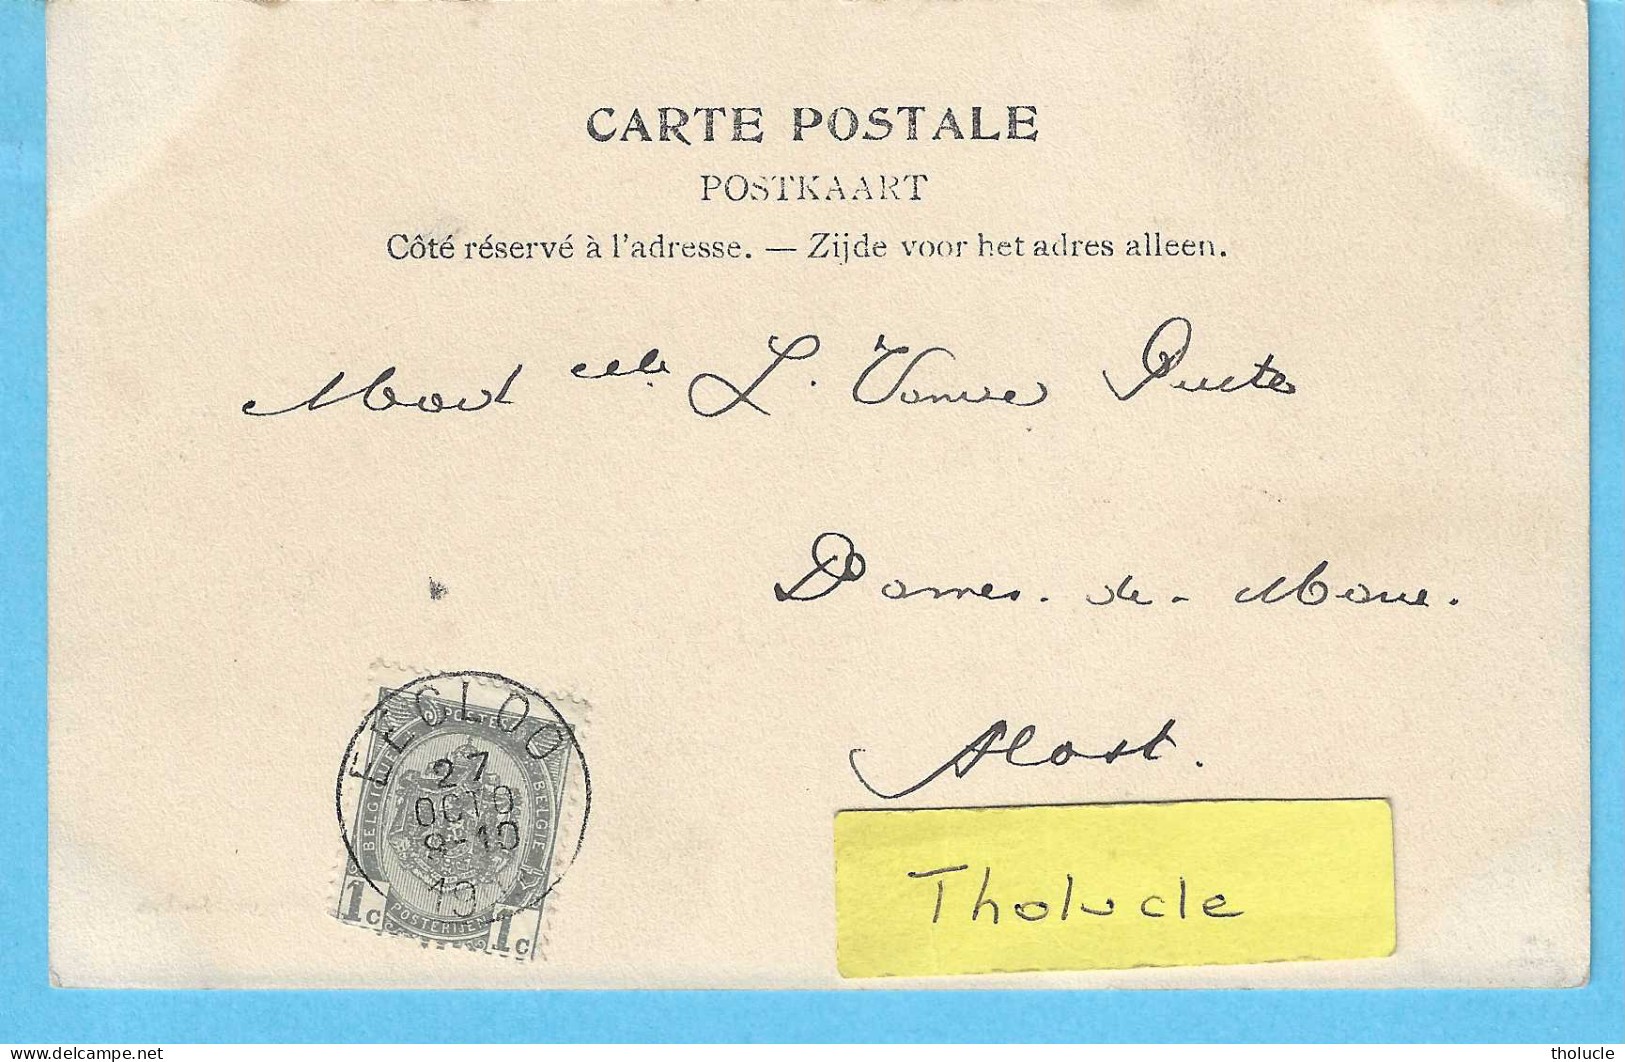 CARTE POSTALE
POSTKAART
Côté réservé à l'adresse. — Zijde voor het adres alleen.
Mad elle L. Vande Putte
Dames. de. Marie.
Alost.
EECLOO
27
OCTO
8-10
19
POSTES
BELGIQUE
BELGIE
POSTERIJEN
1c
1c
Tholucle
tholucle